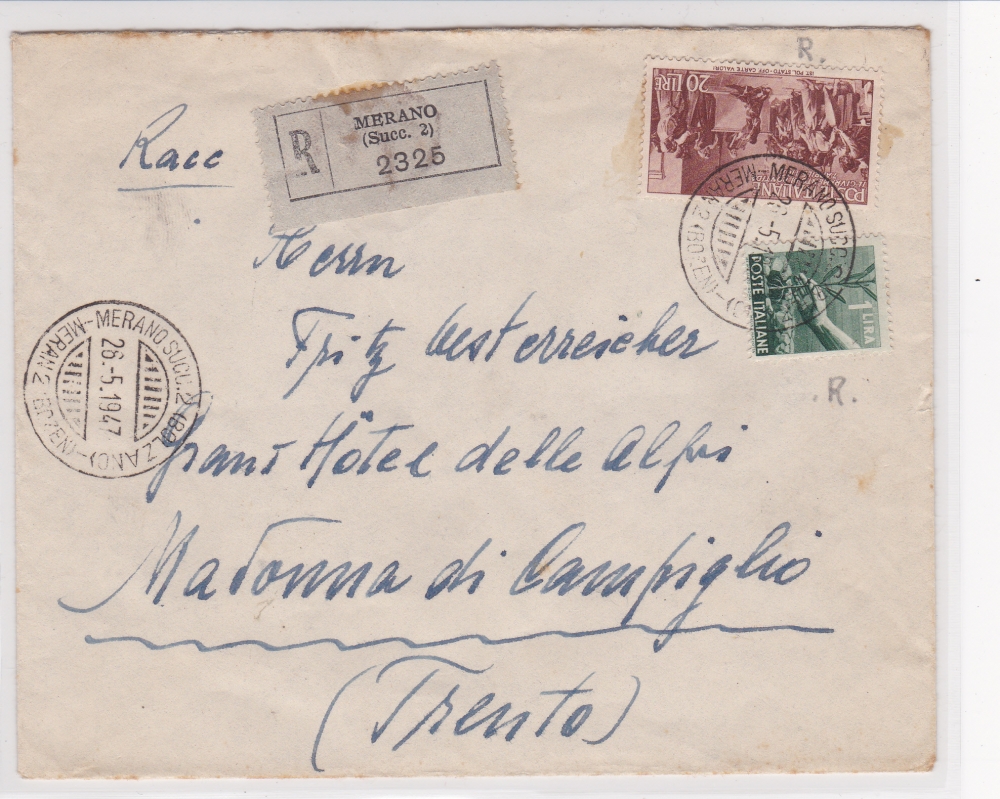 R.
20 LIRE
IST. POL. STATO - OFF. CARTE VALORI
POSTE ITALIANE
Racc
R
MERANO
(Succ. 2)
2325
MERANO SUCC. 2
MERAN 2 (BOZEN)
POSTE ITALIANE
1 LIRA
R.
MERANO SUCC. 2 (BOLZANO)
MERAN 2 (BOZEN)
26.-5.1947
Herrn
Fritz Oesterreicher
Grand Hôtel delle Alpi
Madonna di Campiglio
(Trento)